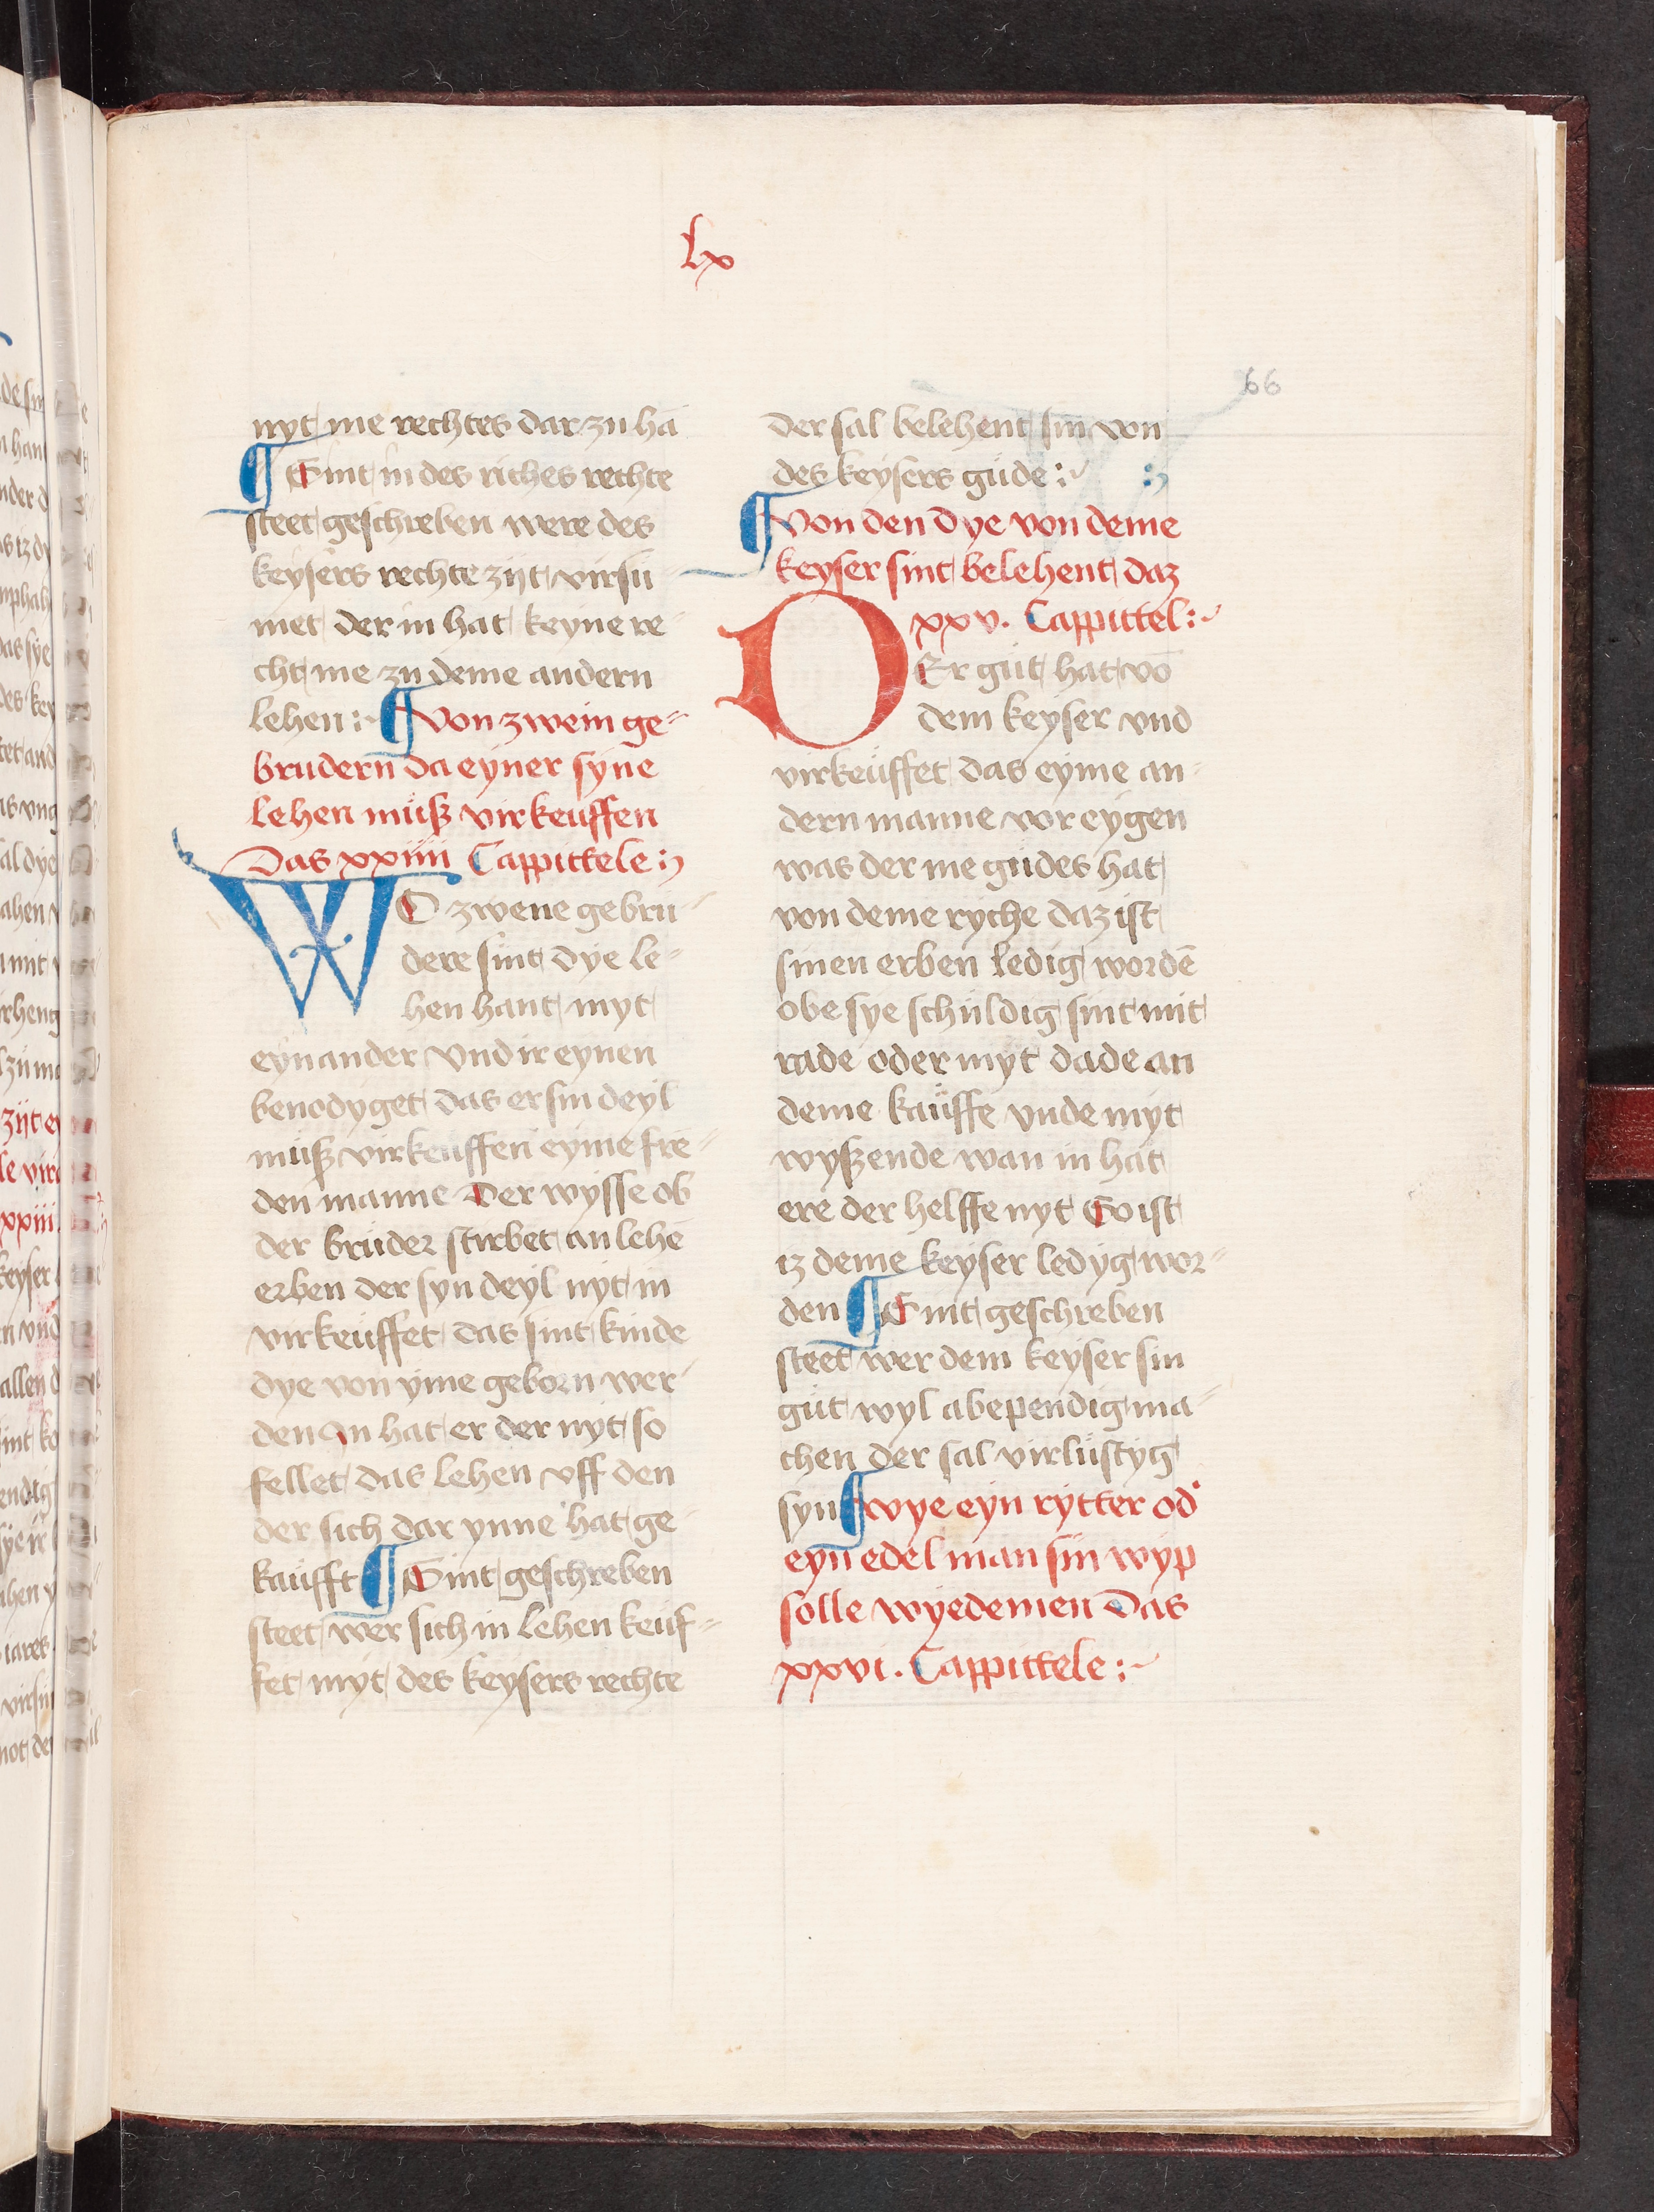 lx
66
nyt me rechtes dar zu hā
¶ Sint in des riches rechte
steet geschreben were des
keysers rechte zijt virsu-
met der in hat keyne re-
cht me zu deme andern
lehen :~ ¶ Von zwein ge-
brudern da eyner syne
lehen muß virkeuffen
Das xxiiii Cappittele :
WO zwene gebru-
dere sint dye le-
hen hant myt
eynander Vnd ir eynen
benodyget das er sin deyl
muß virkeuffen eyme fre-
den manne Der wysse ob
der bruder stirbet an lehē
erben der syn deyl nyt in
virkeuffet das sint kinde
dye von yme geborn wer-
den In hat er der nyt so
fellet das lehen vff den
der sich dar ynne hat ge-
kaufft ¶ Sint geschreben
steet wer sich in lehen keuf-
fet myt des keysers rechte
der sal belehent sin von
des keysers gude :~
¶ Von den dye von deme
keyser sint belehent daz
xxv. Cappittel :~
DEr gut hat vō
dem keyser vnd
virkeuffet das eyme an-
dern manne vor eygen
was der me gudes hat
von deme ryche daz ist
sinen erben ledig wordē
obe sye schuldig sint mit
rade oder myt dade an
deme kauffe vnde myt
wyßende wan in hat
ere der helffe nyt So ist
iz deme keyser ledyg wor-
den ¶ Sint geschreben
steet wer dem keyser sin
gut wyl abependig ma-
chen der sal virlustyg
syn ¶ wye eyn rytter od'
eyn edel man sin wyp
solle wyedemen Das
xxvi. Cappittele :~